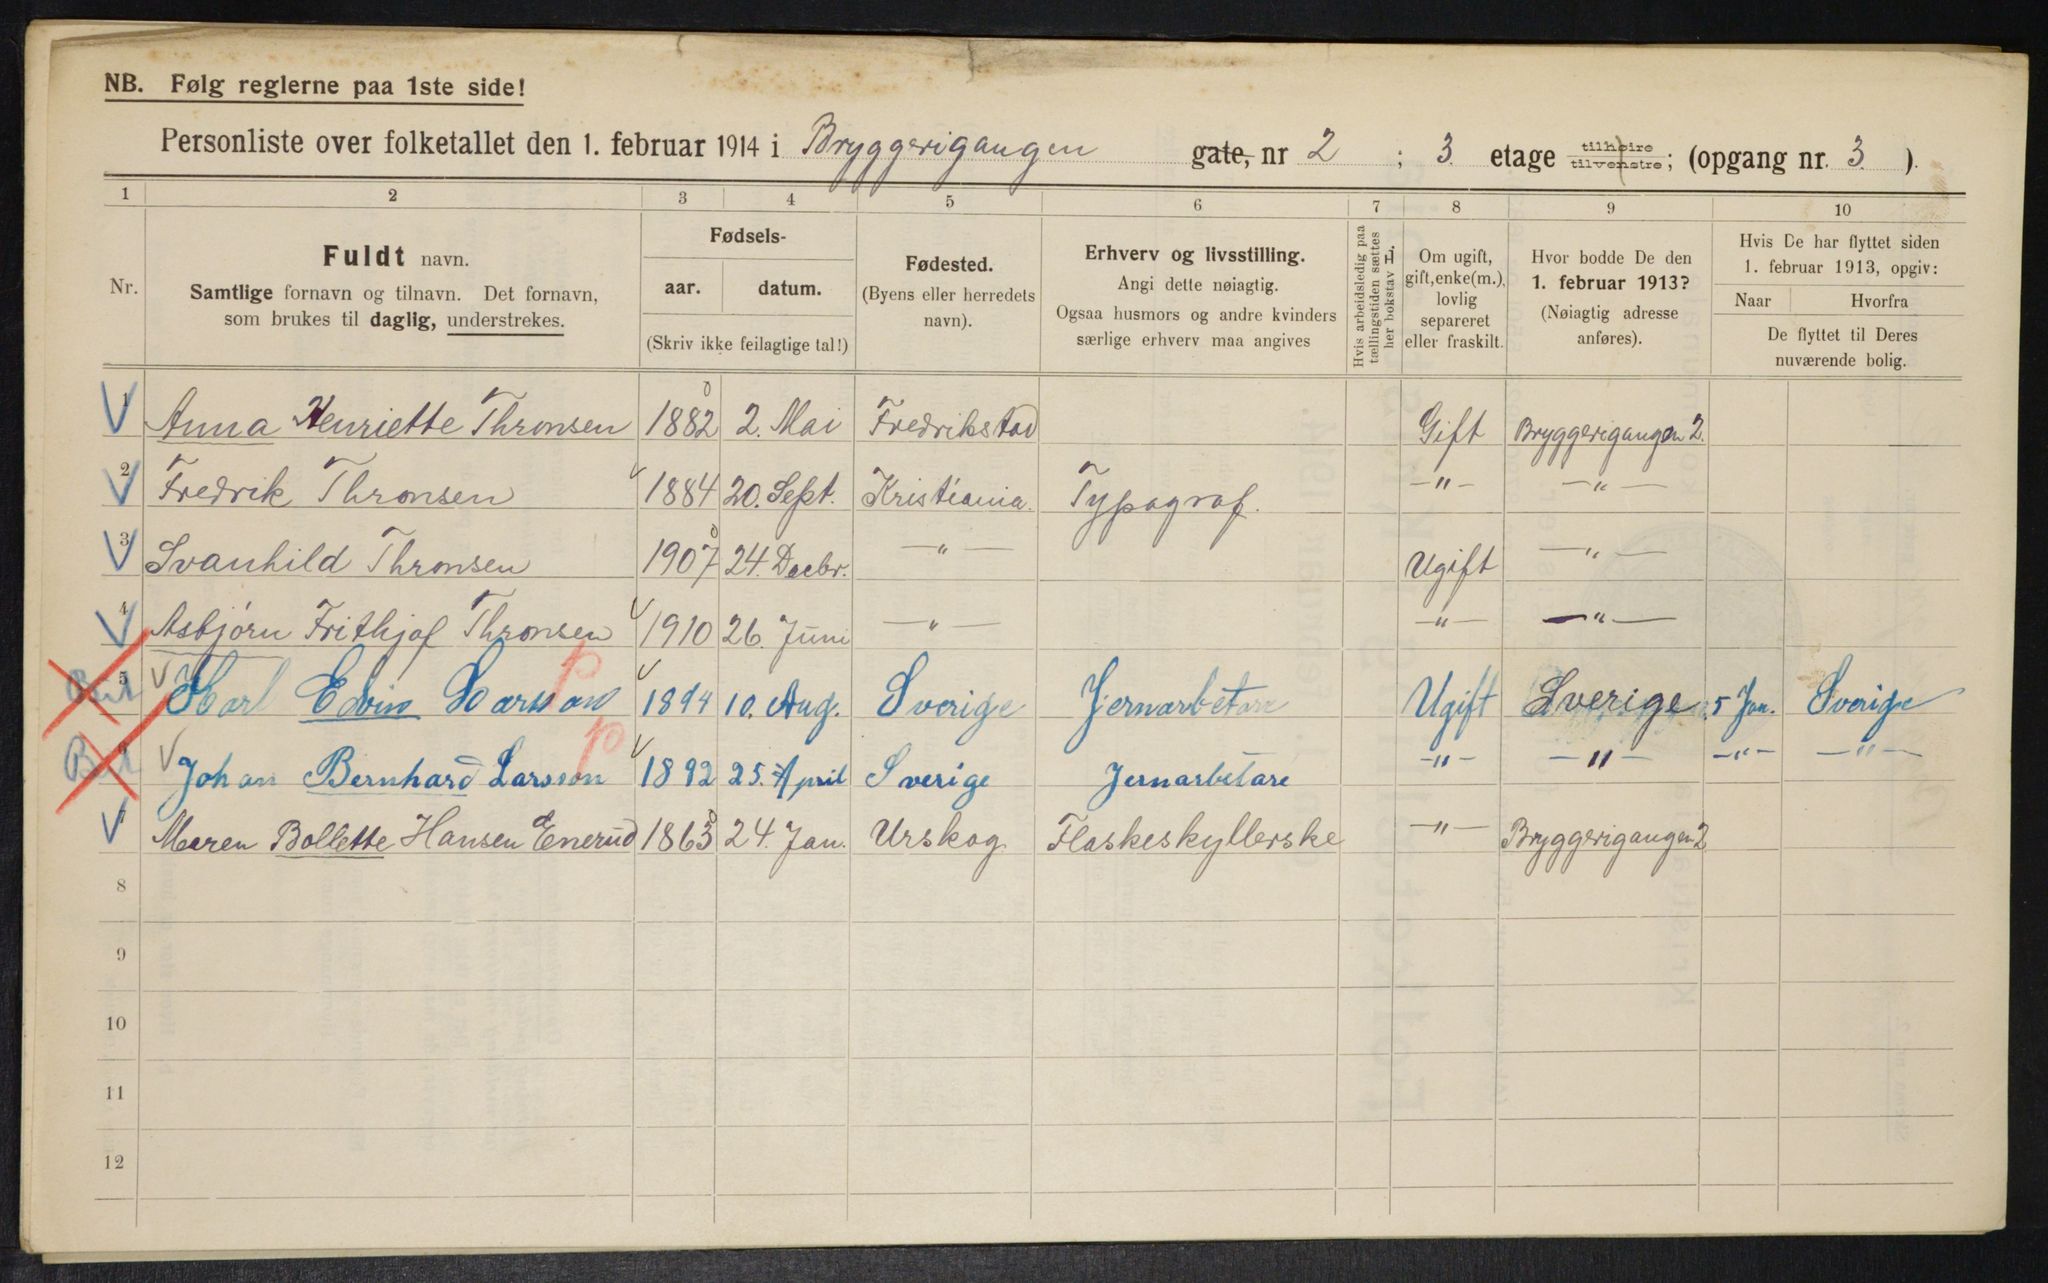 NB. Følg reglerne paa 1ste side!
Personliste over folketallet den 1. februar 1914 i Bryggerigangen gate, nr 2 ; 3 etage tilhøire tilvenstre; (opgang nr. 3 ).
1 2 3 4 5 6 7 8 9 10
Nr.
Fuldt navn.
Samtlige fornavn og tilnavn. Det fornavn,
som brukes til daglig, understrekes.
Fødsels-
aar. datum.
(Skriv ikke feilagtige tal!)
Fødested.
(Byens eller herredets
navn).
Erhverv og livsstilling.
Angi dette nøiagtig.
Ogsaa husmors og andre kvinders
særlige erhverv maa angives
Hvis arbeidsledig paa
tællingstiden sættes
her bokstav L.
Om ugift,
gift, enke(m.),
lovlig
separeret
eller fraskilt.
Hvor bodde De den
1. februar 1913?
(Nøiagtig adresse
anføres).
Hvis De har flyttet siden
1. februar 1913, opgiv:
Naar Hvorfra
De flyttet til Deres
nuværende bolig.
1 Anna Henriette Thronsen 1882 2. Mai Fredrikstad Gift Bryggerigangen 2.
2 Fredrik Thronsen 1884 20. Sept. Kristiania. Typograf. —"— —"—
3 Svanhild Thronsen 1907 24. Decbr. —"— Ugift —"—
4 Asbjørn Frithjof Thronsen 1910 26. Juni —"— —"— —"—
5 Karl Edvin Larsson 1894 10. Aug. Sverige Jernarbetare Ugift Sverige 5 Jan. Sverige
6 Johan Bernhard Larsson 1892 25. April Sverige Jernarbetare —"— —"— —"— —"—
7 Maren Bollette Hansen Enerud 1863 24. Jan. Urskog Flaskeskyllerske —"— Bryggerigangen 2
8
9
10
11
12